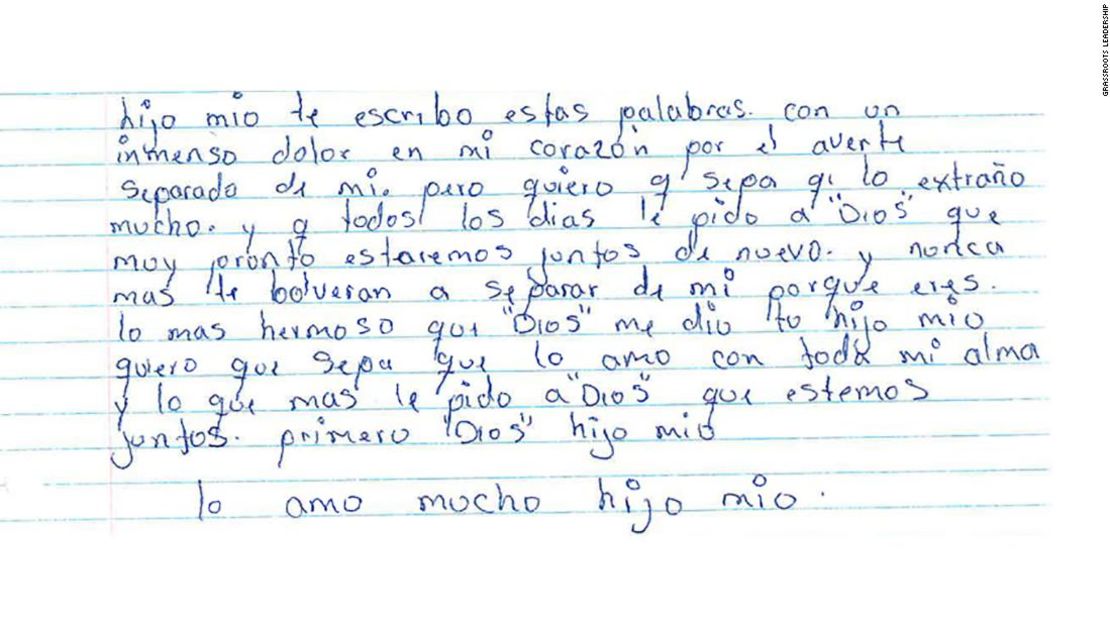 hijo mio te escribo estas palabras. con un
inmenso dolor en mi corazón por el averte
separado de mi. pero quiero q' sepa q' lo extraño
mucho. y q todos los dias le pido a "Dios" que
muy pronto estaremos juntos de nuevo. y nunca
mas te bolveran a separar de mi porque eres.
lo mas hermoso que "Dios" me dio tu hijo mio
quiero que sepa que lo amo con toda mi alma
y lo que mas le pido a "Dios" que estemos
juntos. primero "Dios" hijo mio
lo amo mucho hijo mio.
GRASSROOTS LEADERSHIP